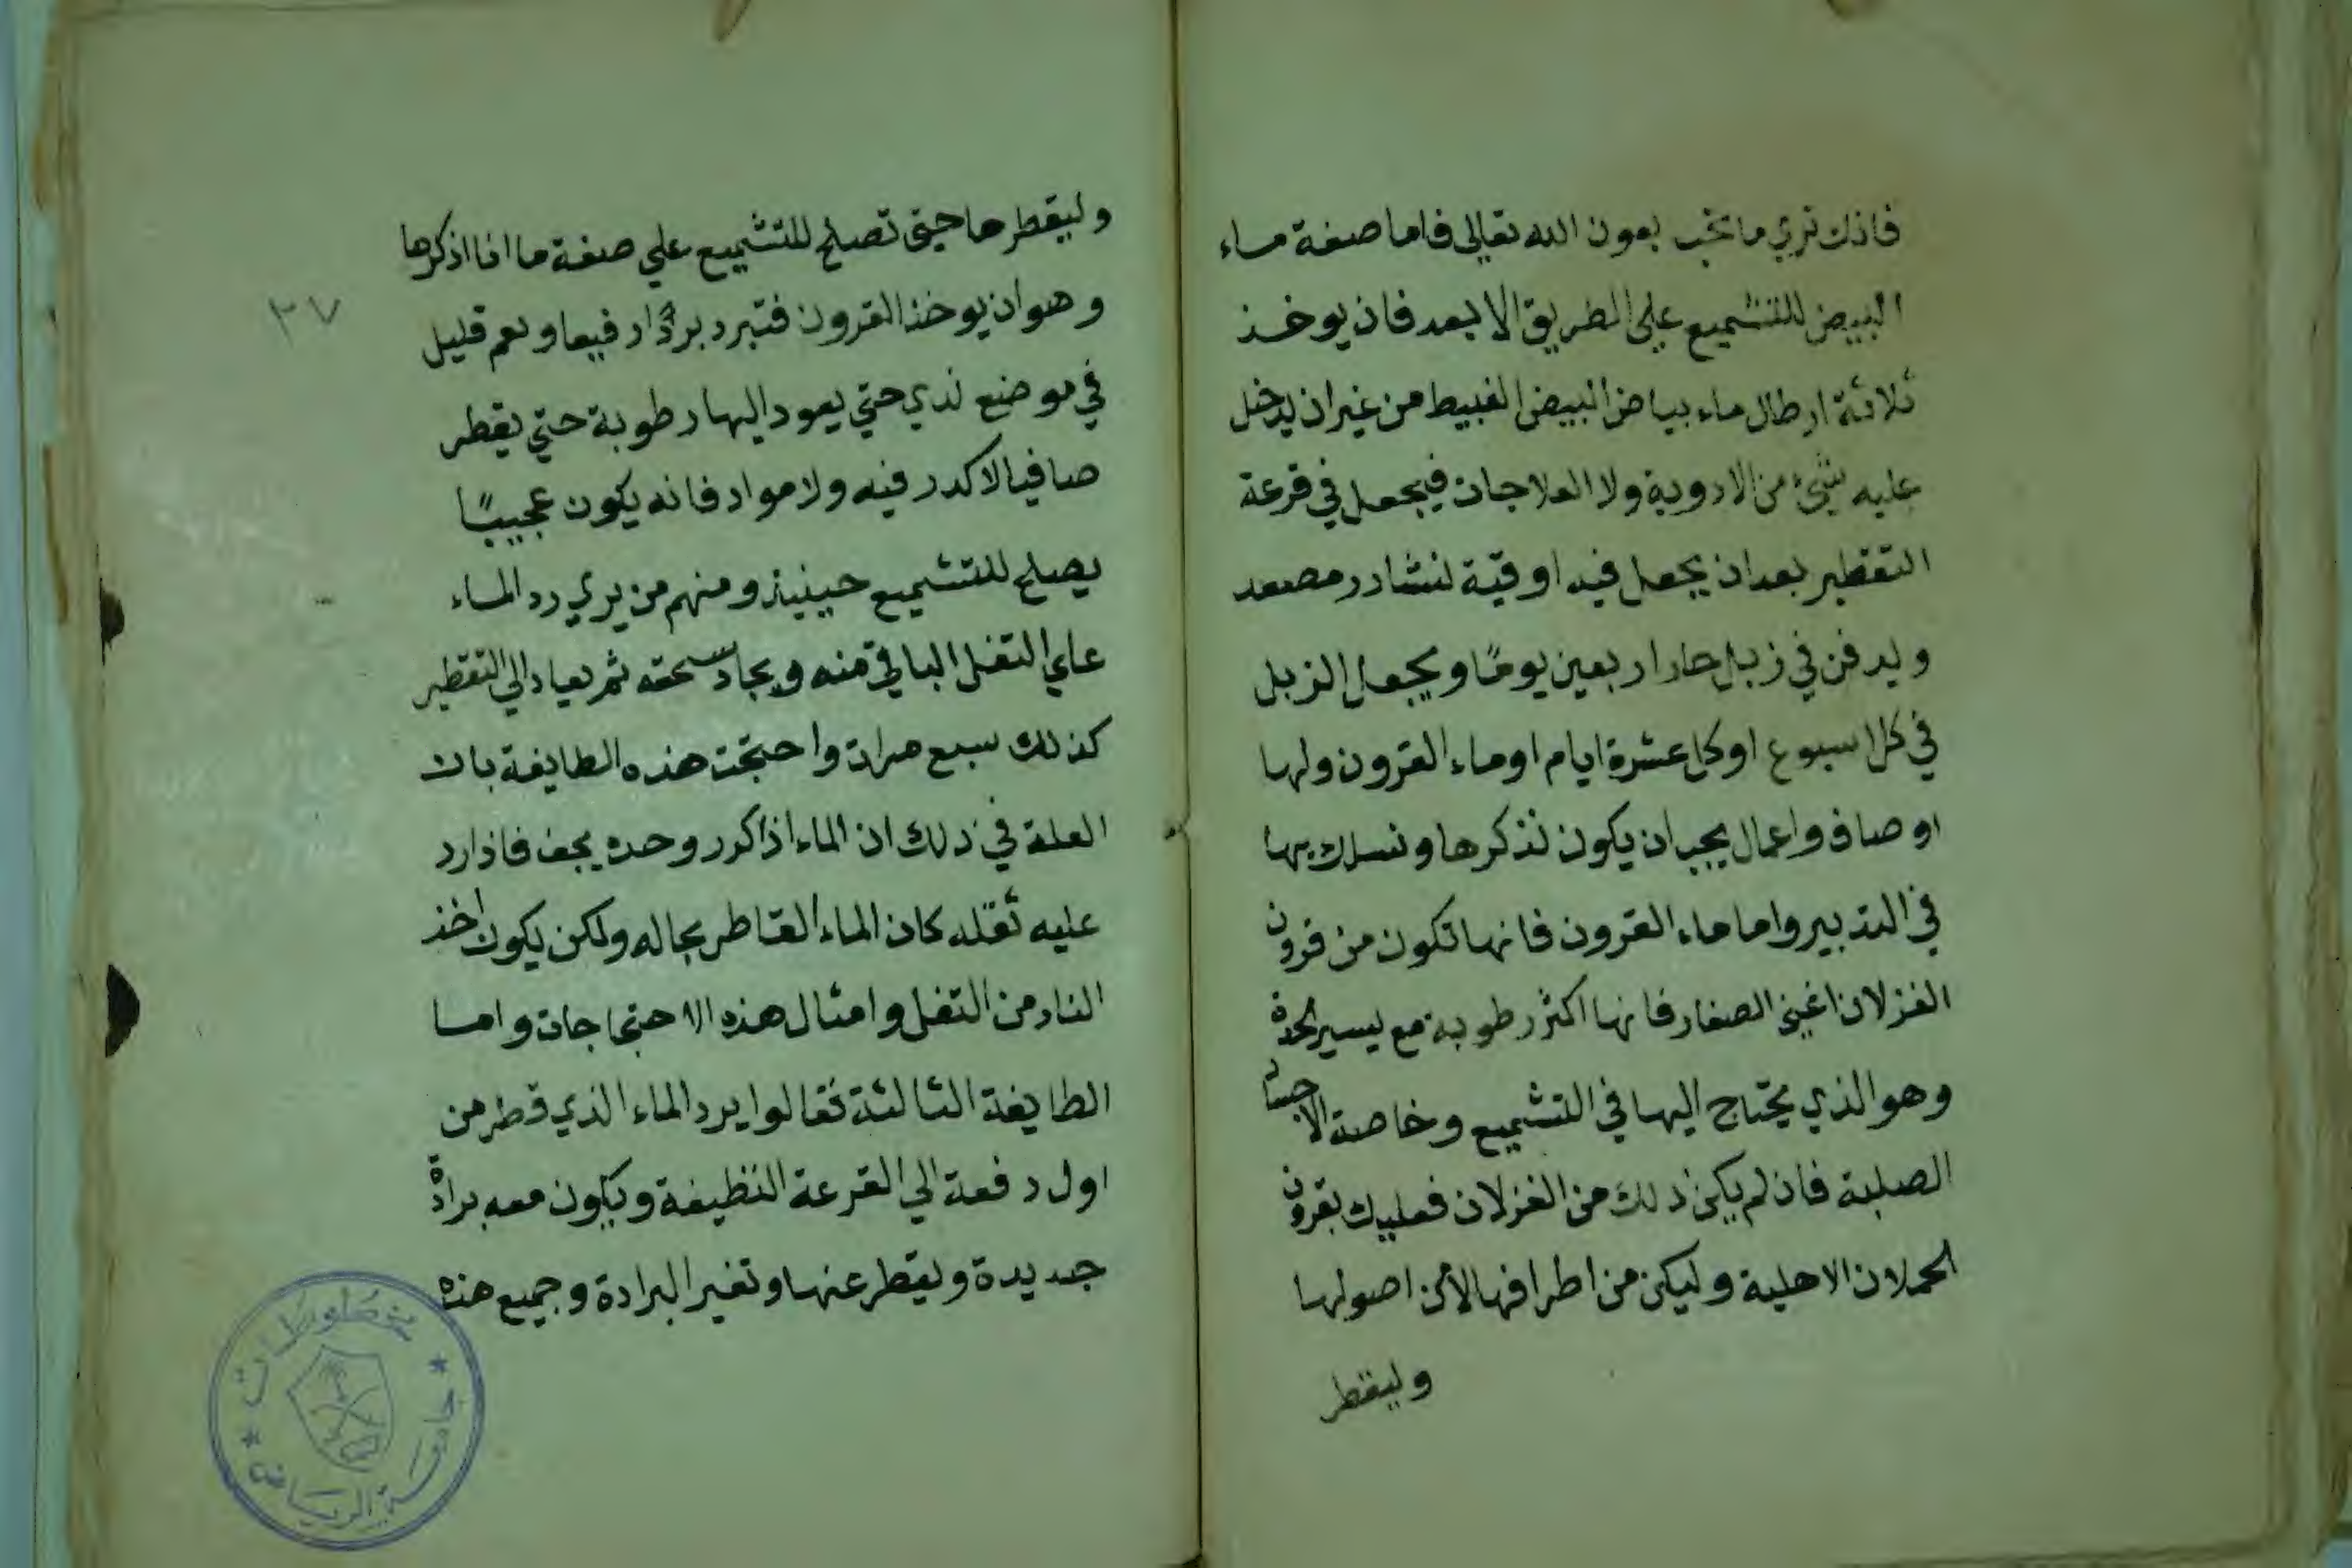 فانك تري ما تحب بعون الله تعالي فاما صفة ماء
البيض للتشميع علي الطريق الابعد فان يوخذ
ثلاثة ارطال ماء بياض البيض الغبيط من غير ان يدخل
عليه شيء من الادوية ولا العلاجات فيجعل في قرعة
التقطير بعد ان يجعل فيه اوقية نشادر مصعد
ويدفن في زبل حار اربعين يومًا ويجعل الزبل
في كل اسبوع او كل عشرة ايام اوماء القرون ولها
اوصاف واعمال يجب ان يكون نذكرها ونسلك بها
في التدبير واما ماء القرون فانها تكون من قرون
الغزلان اعني الصغار فانها اكثر رطوبة مع يسير الحدة
وهو الذي يحتاج اليها في التشميع وخاصة الاجساد
الصلبة فان لم يكن ذلك من الغزلان فعليك بقرون
الحملان الاهلية وليكن من اطرافها لا من اصولها
وليقطر
وليقطرها حتي تصلح للتشميع علي صفة ما انا اذكرها
وهو ان يوخذ القرون فتبرد برادا رفيعا وبعم قليل
في موضع ندي حتي يعود اليها رطوبة حتي يقطر
صافيا لا كدر فيه ولا مواد فانه يكون عجيبًا
يصلح للتشميع حينيذ ومنهم من يري رد الماء
علي التفل الباقي منه ويجاد سحقه ثم يعاد الي التقطير
كذلك سبع مرات واحتجت هذه الطايفة بان
العلة في ذلك ان الماء اذا كرر وحده يجف فاذا رد
عليه ثفله كان الماء القاطر بحاله ولكن يكون اخذ
النار من التفل وامثال هذه الاحتجاجات واما
الطايفة الثالثة فقالوا يرد الماء الذي قطر من
اول دفعة الي القرعة النظيفة ويكون معه برادة
جديدة ويقطر عنها وتغير البرادة وجميع هذه
٣٧
مخطوطات
جامعة الرياض